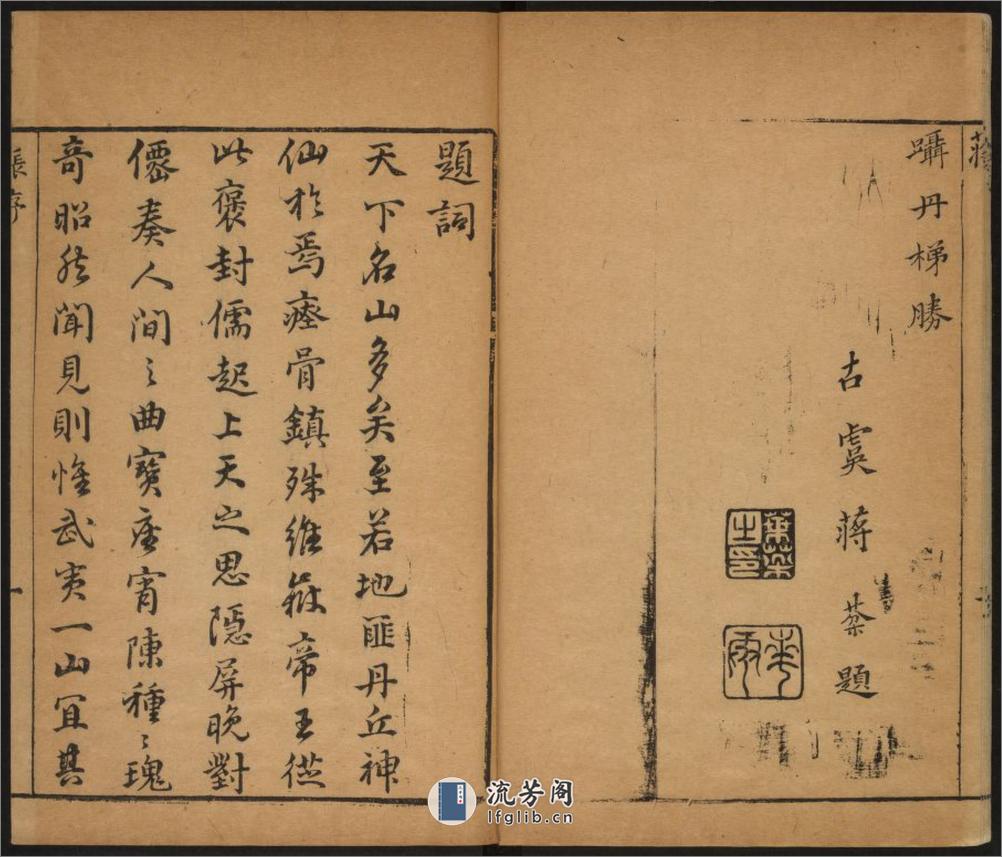 蔣
躡丹梯勝
古虞蔣棻題
題詞
天下名山多矣至若地匪丹丘神
仙於焉瘞骨鎮殊維嶽帝王從
此褒封儒起上天之思隱屏晚對
僊奏人間之曲寶座宵陳種種瑰
奇昭然聞見則惟武夷一山冝其
張序
一
流芳阁
lfglib.cn